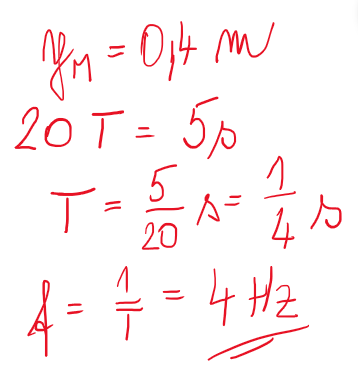 y_M = 0,4 m
20 T = 5 s
T = 5/20 s = 1/4 s
f = 1/T = 4 Hz